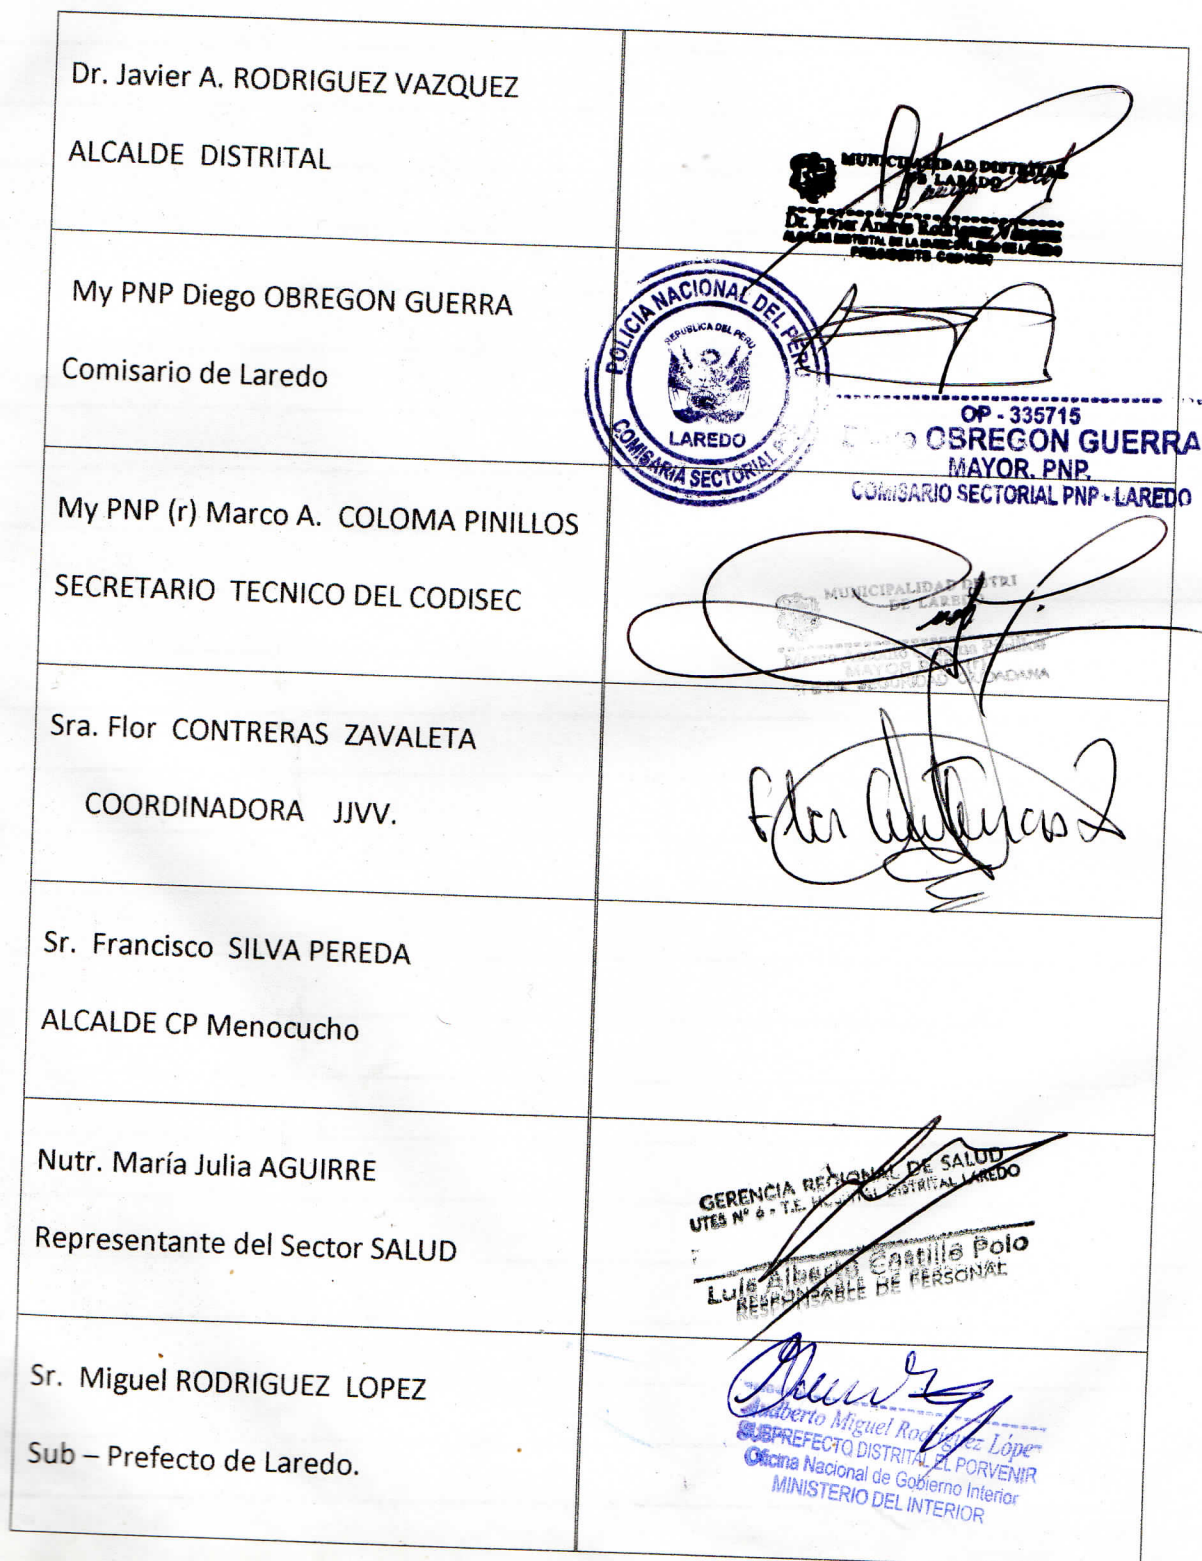 Dr. Javier A. RODRIGUEZ VAZQUEZ
ALCALDE DISTRITAL
MUNICIPALIDAD DISTRITAL
DE LAREDO
Dr. Javier Andrés Rodríguez Vásquez
ALCALDE DISTRITAL DE LA MUNICIPALIDAD DE LAREDO
PRESIDENTE CODISEC
My PNP Diego OBREGON GUERRA
Comisario de Laredo
POLICIA NACIONAL DEL PERU
REPUBLICA DEL PERU
LAREDO
COMISARIA SECTORIAL
OP - 335715
OBREGON GUERRA
MAYOR. PNP.
COMISARIO SECTORIAL PNP - LAREDO
My PNP (r) Marco A. COLOMA PINILLOS
SECRETARIO TECNICO DEL CODISEC
MUNICIPALIDAD DISTRI
DE LAREDO
SEGURIDAD CIUDADANA
Sra. Flor CONTRERAS ZAVALETA
COORDINADORA JJVV.
Flor Contreras Z
Sr. Francisco SILVA PEREDA
ALCALDE CP Menocucho
Nutr. María Julia AGUIRRE
Representante del Sector SALUD
GERENCIA REGIONAL DE SALUD
UTES Nº 6 - T.E. HOSPITAL DISTRITAL LAREDO
Luis Alberto Castillo Polo
RESPONSABLE DE PERSONAL
Sr. Miguel RODRIGUEZ LOPEZ
Sub – Prefecto de Laredo.
Miguel Rodríguez López
SUBPREFECTO DISTRITAL EL PORVENIR
Oficina Nacional de Gobierno Interior
MINISTERIO DEL INTERIOR